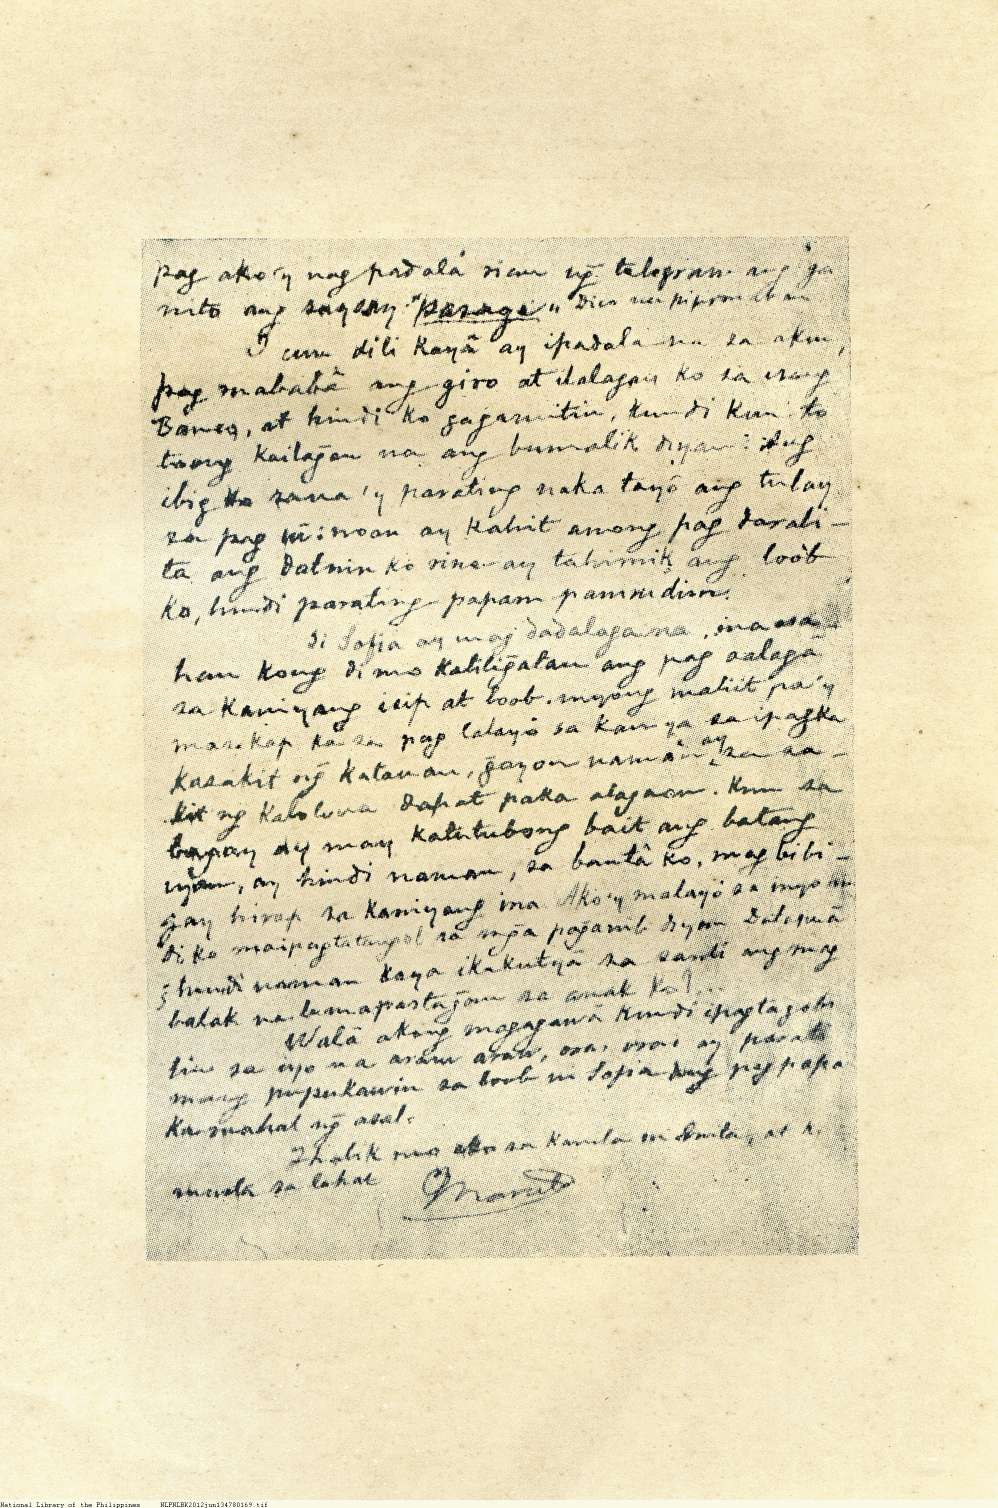 pag ako'y nag padalá rian ng̃ telegram ang ga
nito ang saysay "pasage" Dico na pipirmahan
I cun dili kayâ ay ipadala na sa akin,
pag mababâ ang giro at ilalagay ko sa isang
Banco, at hindi ko gagamitin, kundi kun to
toong kailag̃an na ang bumalik diyan: Ang
ibig ko sana'y parating naka tayô ang tulay
sa pag ay kahit anong pag darali-
ta ang datnin ko rine ay tahimik ang loôb
ko, hindi parating papam pamindim.
Si Sofia ay mag dadalaga na, ina asa-
han kong di mo kalilig̃atan ang pag aalaga
sa kaniyang isip at loob. myong maliit pa'y
masikap ka sa pag lalayó sa kaniya sa ipagka
kasakit ng̃ katawan, g̃ayon naman ay sa sa-
kit ng kaloluwa dapat paka alagaan. Kun sa
bagay ay may katutubong bait ang batang
iyan, ay hindi naman, sa bantâ ko, mag bibi-
gay hirap sa kaniyang ina. Ako'y malayó sa inyo
di ko maipagtatangol sa mg̃a pag̃anib diyan
hindi naman kaya ikakutyâ sa santi ang mag
balak na lumapastag̃an sa anak ko!...
Walâ akong magagawa kundi ipagtagobi
lin sa iyo na araw araw, oras oras ay parati
mong pupukawin sa loob ni Sofia ang pag papa
ka mahal ng̃ asal.
Ihalik mo ako sa kamla ni at k.
musta sa lahat